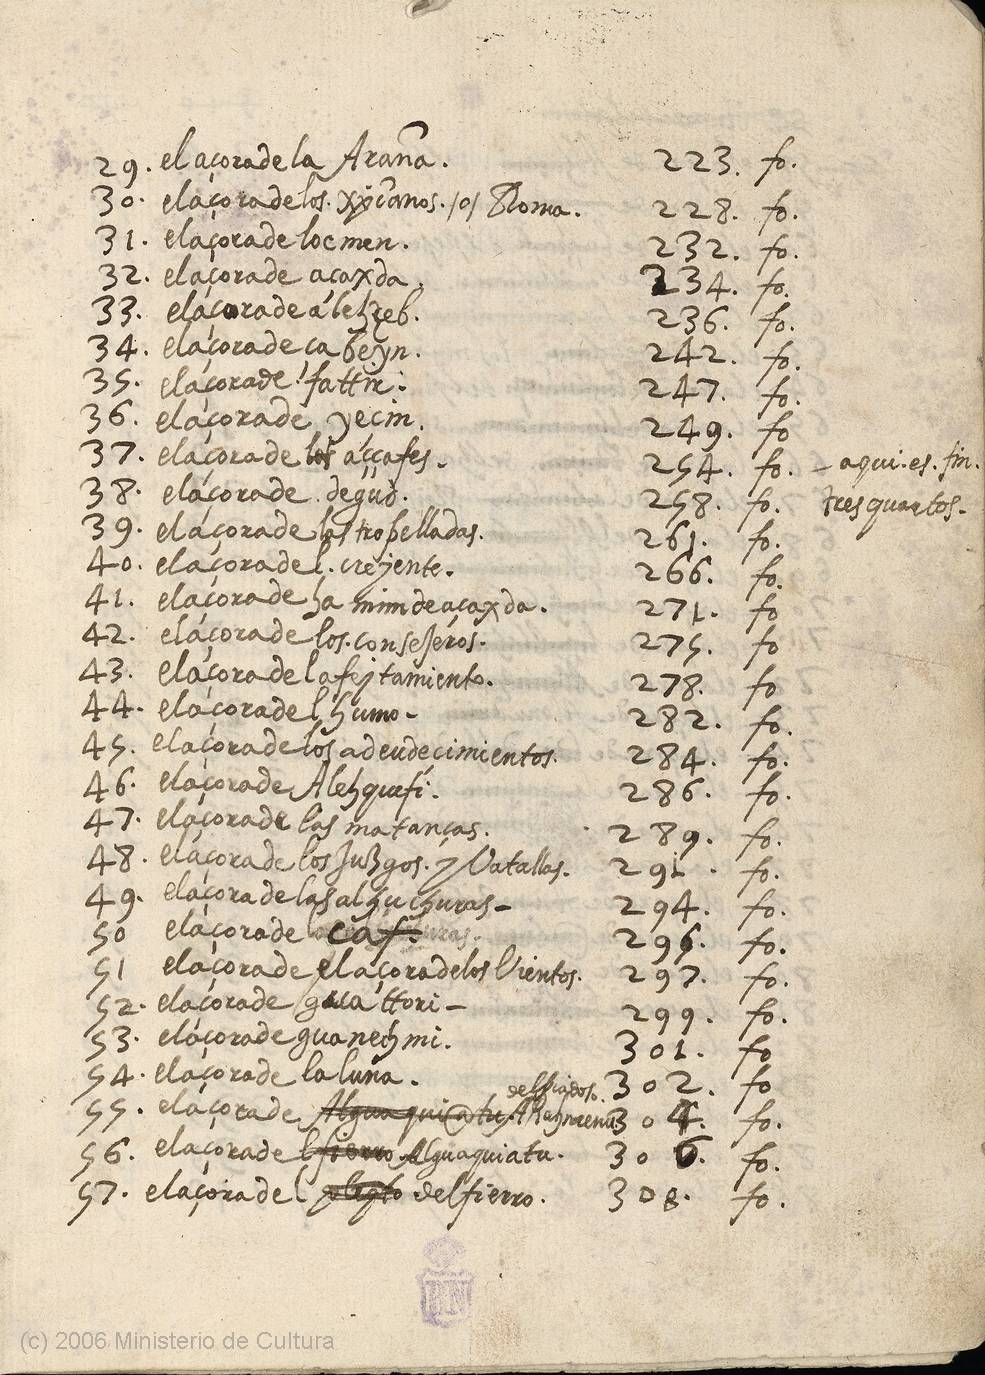 29. el açora de la Araña. 223. fo.
30. el açora de los. xpi̅anos. /o/ Rroma. 228. fo.
31. el açora de locmen. 232. fo.
32. el açora de açaxda. 234. fo.
33. el açora de alehzeb. 236. fo.
34. el açora de çabeyn. 242. fo.
35. el açora de fattir. 247. fo.
36. el açora de yecin. 249. fo
37. el açora de los aççafes. 254. fo. – aqui. es. fin.
38. el açora de degud. 258. fo. tres quartos.
39. el açora de las tropelladas. 261. fo.
40. el açora del. creyente. 266. fo.
41. el açora de ha mim de açaxda. 271. fo
42. el açora de los. consejeros. 275. fo
43. el açora del afeytamiento. 278. fo
44. el açora del humo – 282. fo.
45. el açora de los adeudecimientos. 284. fo.
46. el açora de Alehquefi. 286. fo.
47. el açora de las matanças. 289. fo.
48. el açora de los Juzgos. y Vatallas. 291. fo.
49. el açora de las alhuchuras – 294. fo.
50 el açora de caf. 296. fo.
51 el açora de el açora de los Vientos. 297. fo.
52. el açora de guattori – 299. fo.
53. el açora de guanechmi. 301. fo
54. el açora de la luna. 302. fo
55. el açora de Alguaquiatu Alrahmenu 304. fo.
56. el açora del fierro Alguaquiatu. 306. fo.
57. el açora del pleyto del fierro. 308. fo.
(c) 2006 Ministerio de Cultura